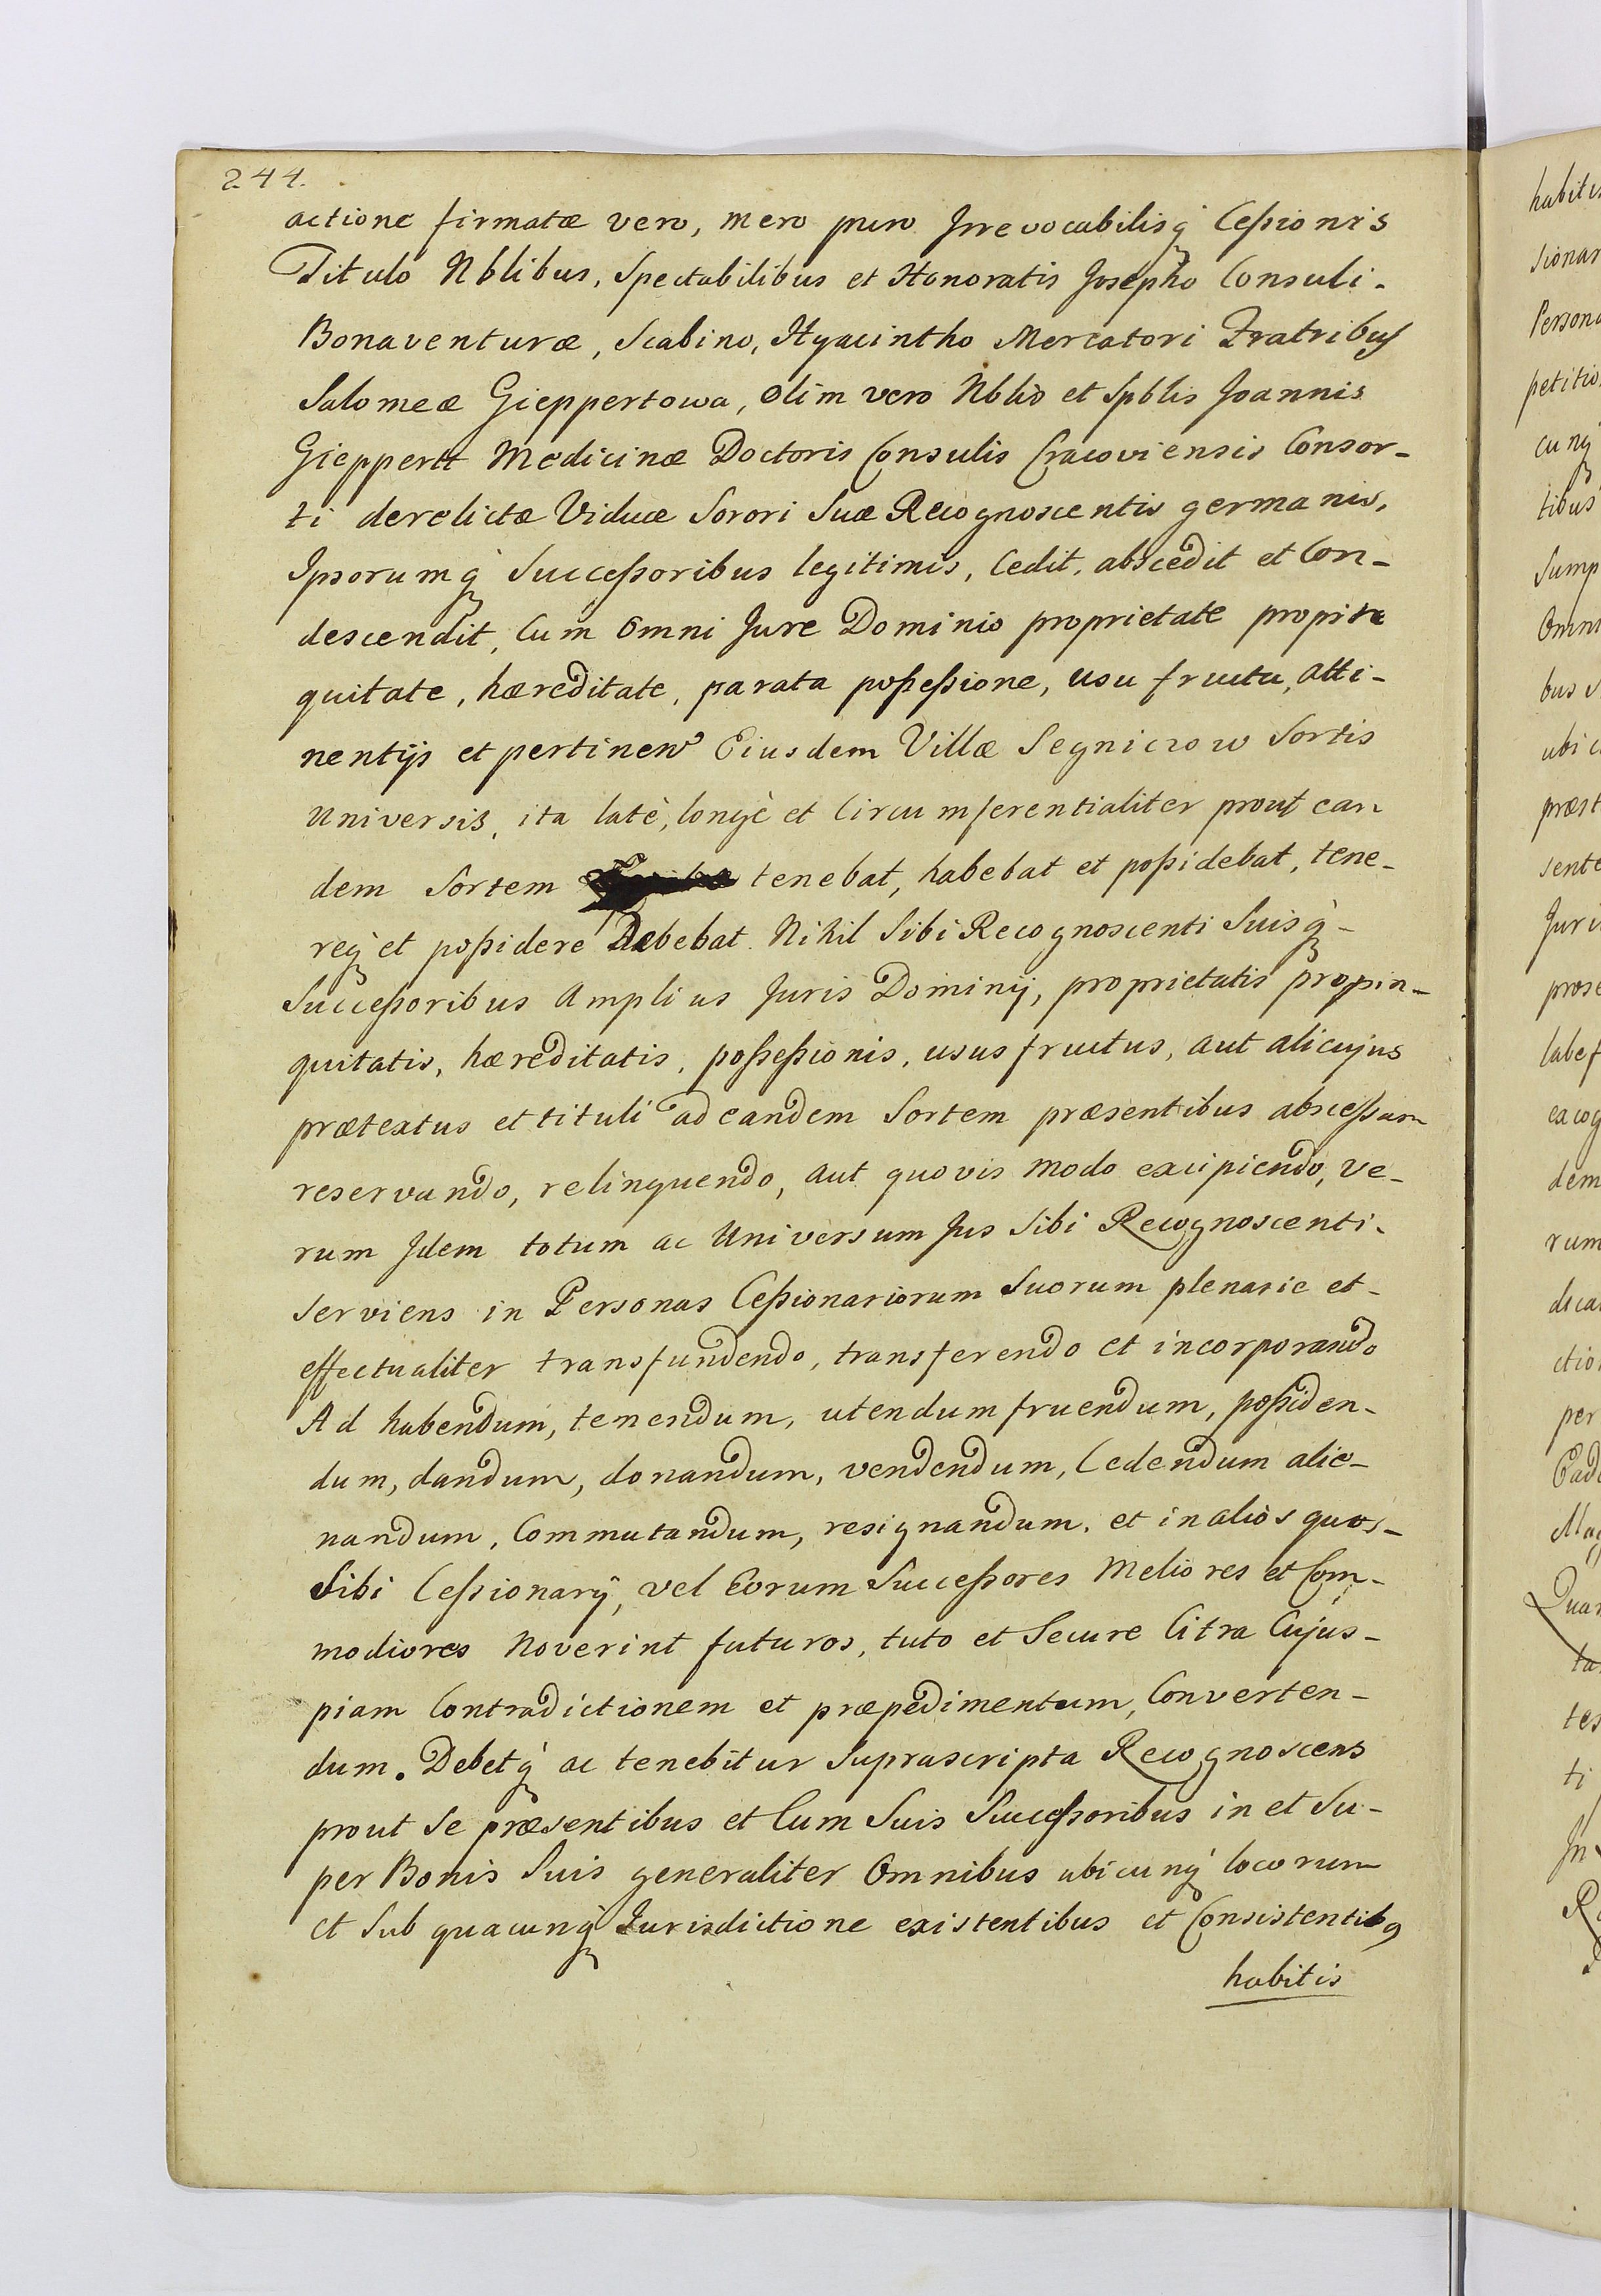 244.
actione firmatæ vero, mero puro Irrevocabilisq̀ Ceßionis
Titulo Nblibus, Spectabilibus et Honoratis Josepho Consuli.
Bonaventuræ, Scabino, Hyacintho Mercatori Fratribus
Salomeæ Gieppertowa, olim vero Nblis et Spblis Joannis
Gieppertt Medicinæ Doctoris Consulis Cracoviensis Consor-
ti derelictæ Viduæ Sorori Suæ Recognoscentis germanis,
Ipsorumq̀ Succeßoribus legitimis, Cedit, abscedit et Con-
descendit, Cum Omni Jure Dominio proprietate propin
quitate, hæreditate, parata poßeßione, usu fructu, atti-
nentijs et pertinen Eiusdem Villæ Segnicrow Sortis
Universis, ita latè, longè et Circumferentialiter prout ean
dem Sortem tenebat, habebat et poßidebat, tene-
req̀ et poßidere Debebat. Nihil Sibi Recognoscenti Suisq̀-
Succeßoribus Amplius Juris Dominij, proprietatis propin-
quitatis, hæreditatis, poßeßionis, ususfructus, aut alicujus
prætextus et tituli ad eandem Sortem præsentibus absceßam
reservando, relinquendo, aut quovis modo excipiendo, ve-
rum Idem totum ac Universum Jus Sibi Recognoscenti-
serviens in Personas Ceßionariorum Suorum plenarie et-
effectualiter transfundendo, transferendo et incorporando
Ad habendum, tenendum, utendumfruendum, poßiden-
dum, dandum, donandum, vendendum, Cedendum alie-
nandum, Commutandum, resignandum, et in alios quos-
Sibi Ceßionarij, vel Eorum Succeßores Meliores et Com-
modiores Noverint futuros, tuto et Secure Citra Cujus-
piam Contradictionem et præpedimentum, Converten-
dum. Debetq̀ ac tenebitur Suprascripta Recognoscens
prout Se præsentibus et Cum Suis Succeßoribus in et Su-
per Bonis Suis generaliter Omnibus ubicunq̀ locorum
et Sub quacunq̀ Jurisdictione existentibus et Consistentibꝰ
habitis
habitis
sionar
Persona
petitio
cunq̀
tibus
Sump
Omni
bus s
ubic
præst
sente
Juri
prose
labef
excog
dem
rum
dica
ctio
per
Eade
Mag
Quar
ta
tes
ti
In
R